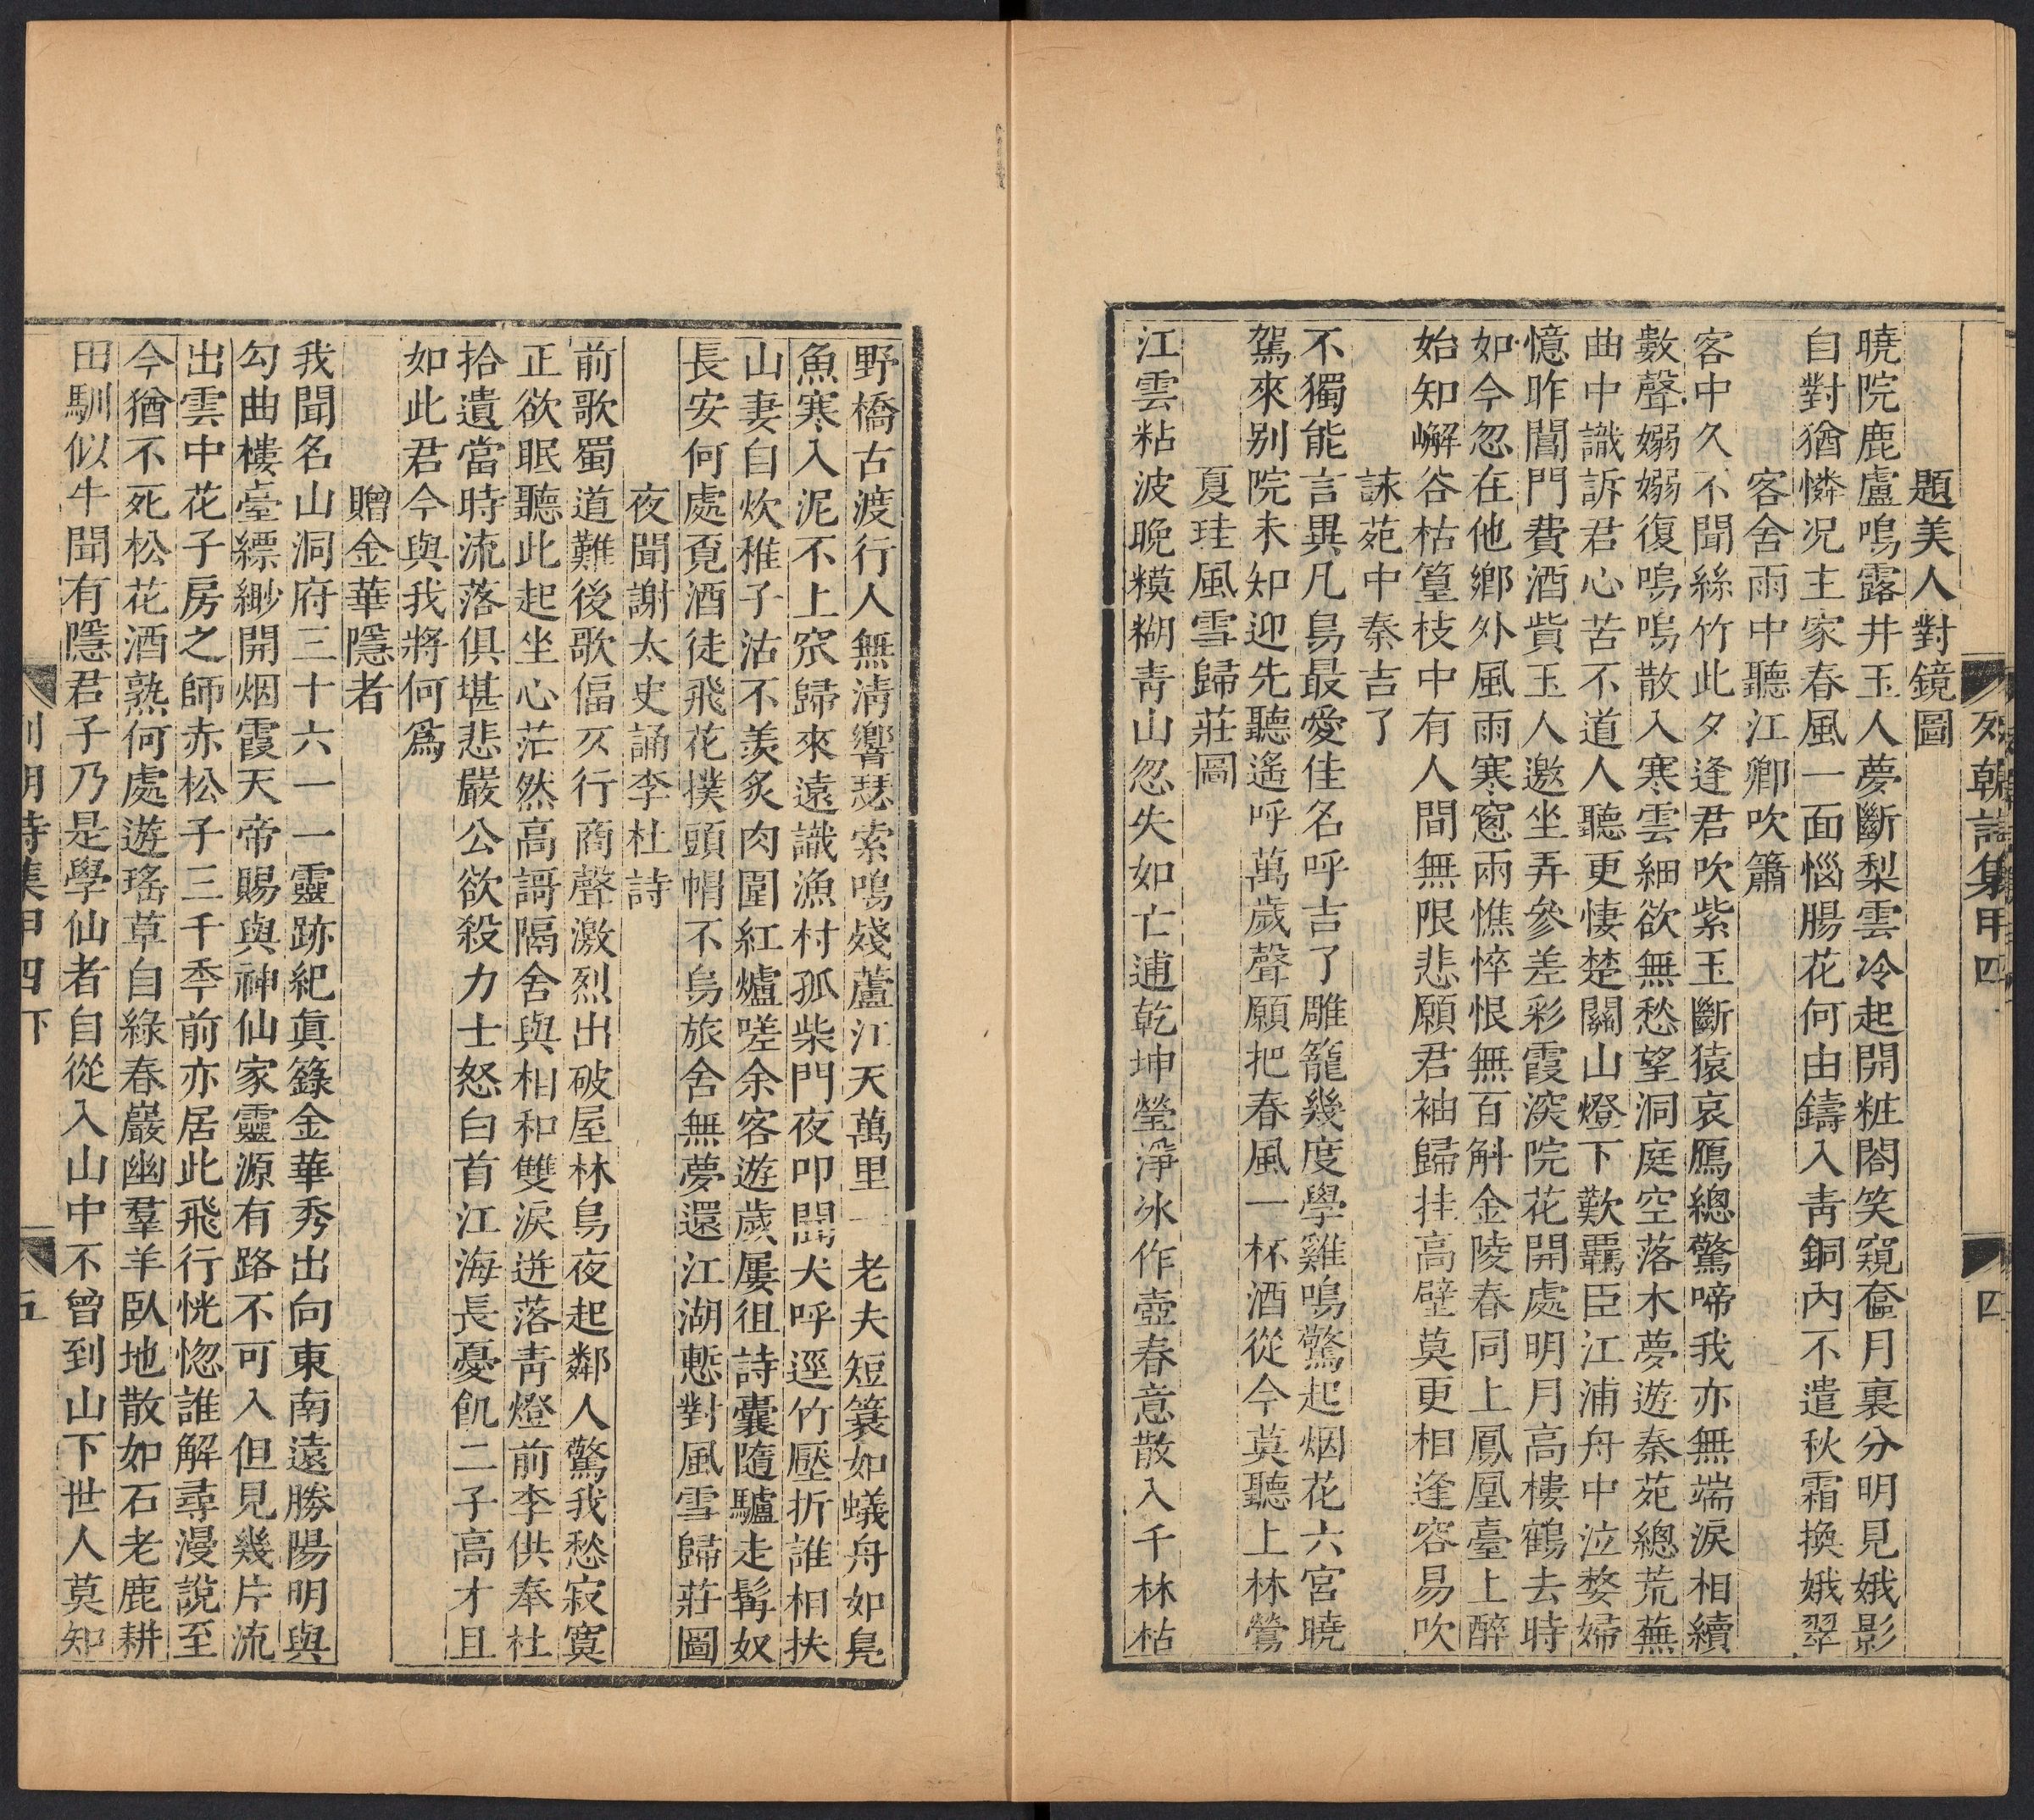 列朝詩集甲四
四
題美人對鏡圖
曉院鹿盧鳴露井玉人夢斷梨雲冷起開粧閤笑窺奩月裏分明見娥影
自對猶憐况主家春風一面惱腸花何由鑄入靑銅內不遣秋霜換娥翠
客舍雨中聽江卿吹簫
客中久不聞絲竹此夕逢君吹紫玉斷猿哀鴈總驚啼我亦無端淚相續
數聲嫋嫋復嗚嗚散入寒雲細欲無愁望洞庭空落木夢遊秦苑總荒蕪
曲中識訴君心苦不道人聽更悽楚關山燈下歎羈臣江浦舟中泣婺婦
憶昨閶門費酒貲玉人邀坐弄參差彩霞深院花開處明月高樓鶴去時
如今忽在他鄉外風雨寒窻兩憔悴恨無百斛金陵春同上鳳凰臺上醉
始知嶰谷枯篁枝中有人間無限悲願君袖歸挂高壁莫更相逢容易吹
誄苑中秦吉了
不獨能言異凡鳥最愛佳名呼吉了雕籠幾度學雞鳴驚起烟花六宮曉
駕來别院未知迎先聽遙呼萬歲聲願把春風一杯酒從今莫聽上林鶯
夏珪風雪歸莊圖
江雲粘波晚糢糊靑山忽失如亡逋乾坤瑩淨冰作壺春意散入千林枯
野橋古渡行人無淸響瑟索鳴殘蘆江天萬里一老夫短簔如蟻舟如鳧
魚寒入泥不上罛歸來遠識漁村孤柴門夜叩聞犬呼逕竹壓折誰相扶
山妻自炊稚子沽不羨炙肉圍紅爐嗟余客遊歲屢徂詩囊隨驢走髯奴
長安何處覔酒徒飛花撲頭帽不烏旅舍無夢還江湖慙對風雪歸莊圖
夜聞謝太史誦李杜詩
前歌蜀道難後歌偪仄行商聲激烈出破屋林烏夜起鄰人驚我愁寂寞
正欲眠聽此起坐心茫然高謌隔舍與相和雙淚迸落靑燈前李供奉杜
拾遺當時流落俱堪悲嚴公欲殺力士怒白首江海長憂飢二子高才且
如此君今與我將何爲
贈金華隱者
我聞名山洞府三十六一一靈跡紀眞籙金華秀出向東南遠勝陽明與
勾曲樓臺縹緲開烟霞天帝賜與神仙家靈源有路不可入但見幾片流
出雲中花子房之師赤松子三千季前亦居此飛行恍惚誰解尋漫說至
今猶不死松花酒熟何處遊瑤草自綠春巖幽羣羊臥地散如石老鹿耕
田馴似牛聞有隱君子乃是學仙者自從入山中不曾到山下世人莫知
列朝詩集甲四下
五